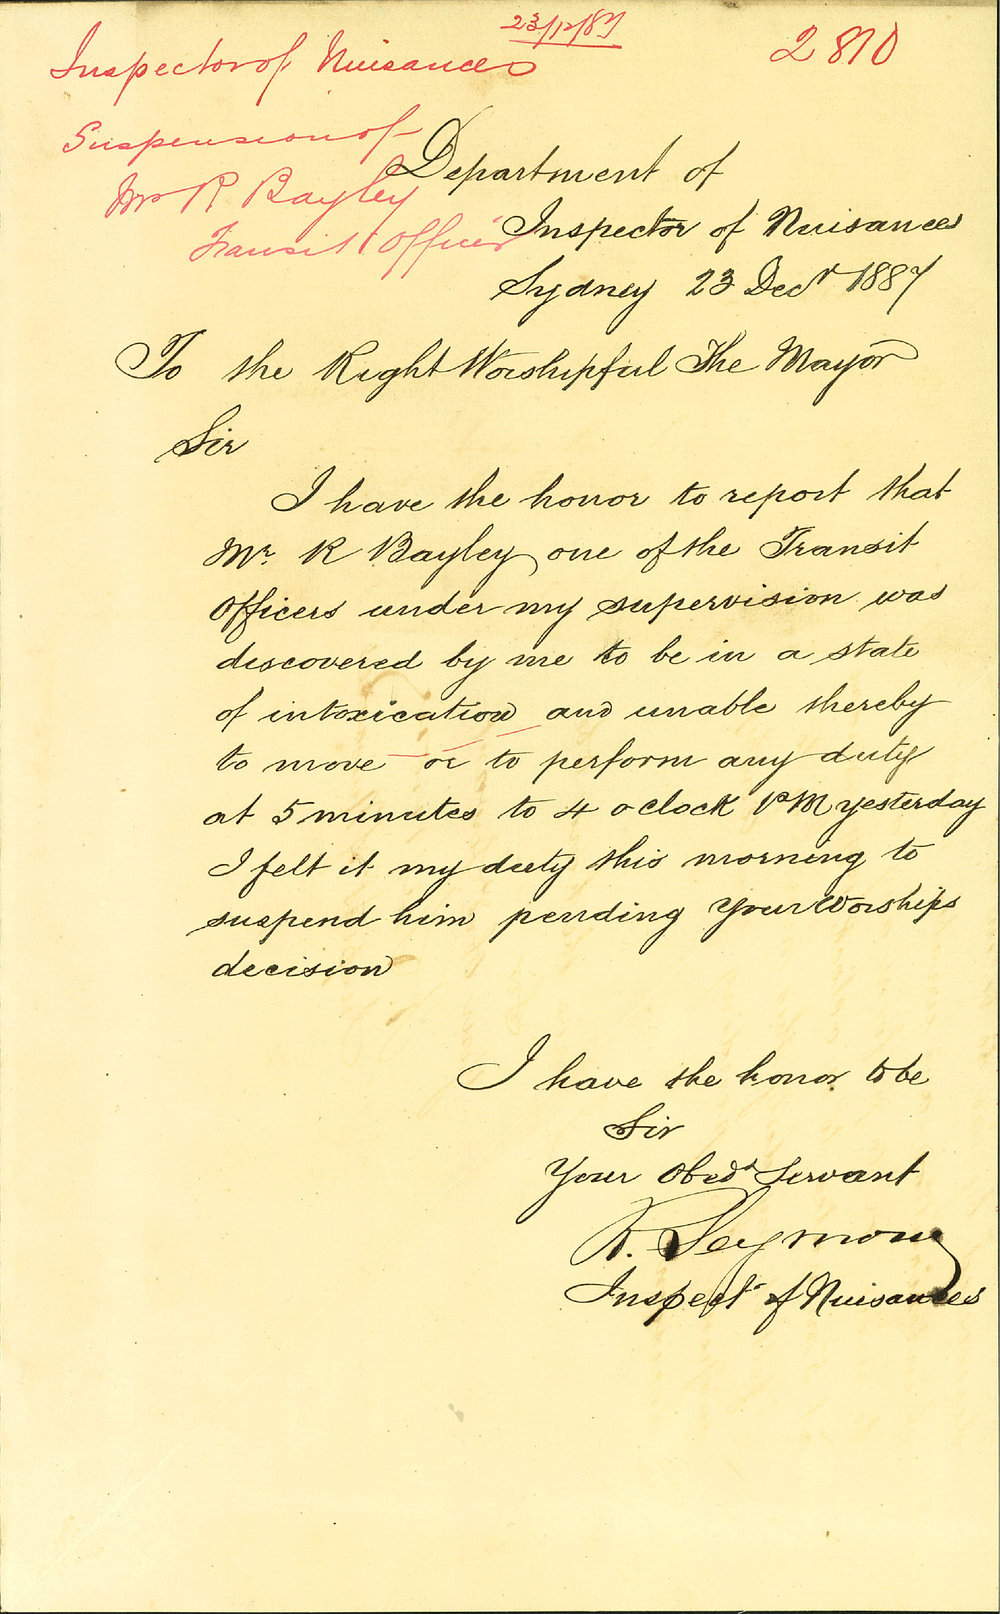 23/12/87
2810
Inspector of Nuisances
Suspension of
Mr R Bayley
Transit Officer
Department of
Inspector of Nuisances
Sydney 23 Decr 1887
To the Right Worshipful The Mayor
Sir
I have the honor to report that
Mr. R Bayley one of the Transit
Officers under my supervision was
discovered by me to be in a state
of intoxication and unable thereby
to move or to perform any duty
at 5 minutes to 4 o clock PM yesterday
I felt it my duty this morning to
suspend him pending Your Worships
decision
I have the honor to be
Sir
Your Obedt Servant
R. Seymour
Inspectr of Nuisances